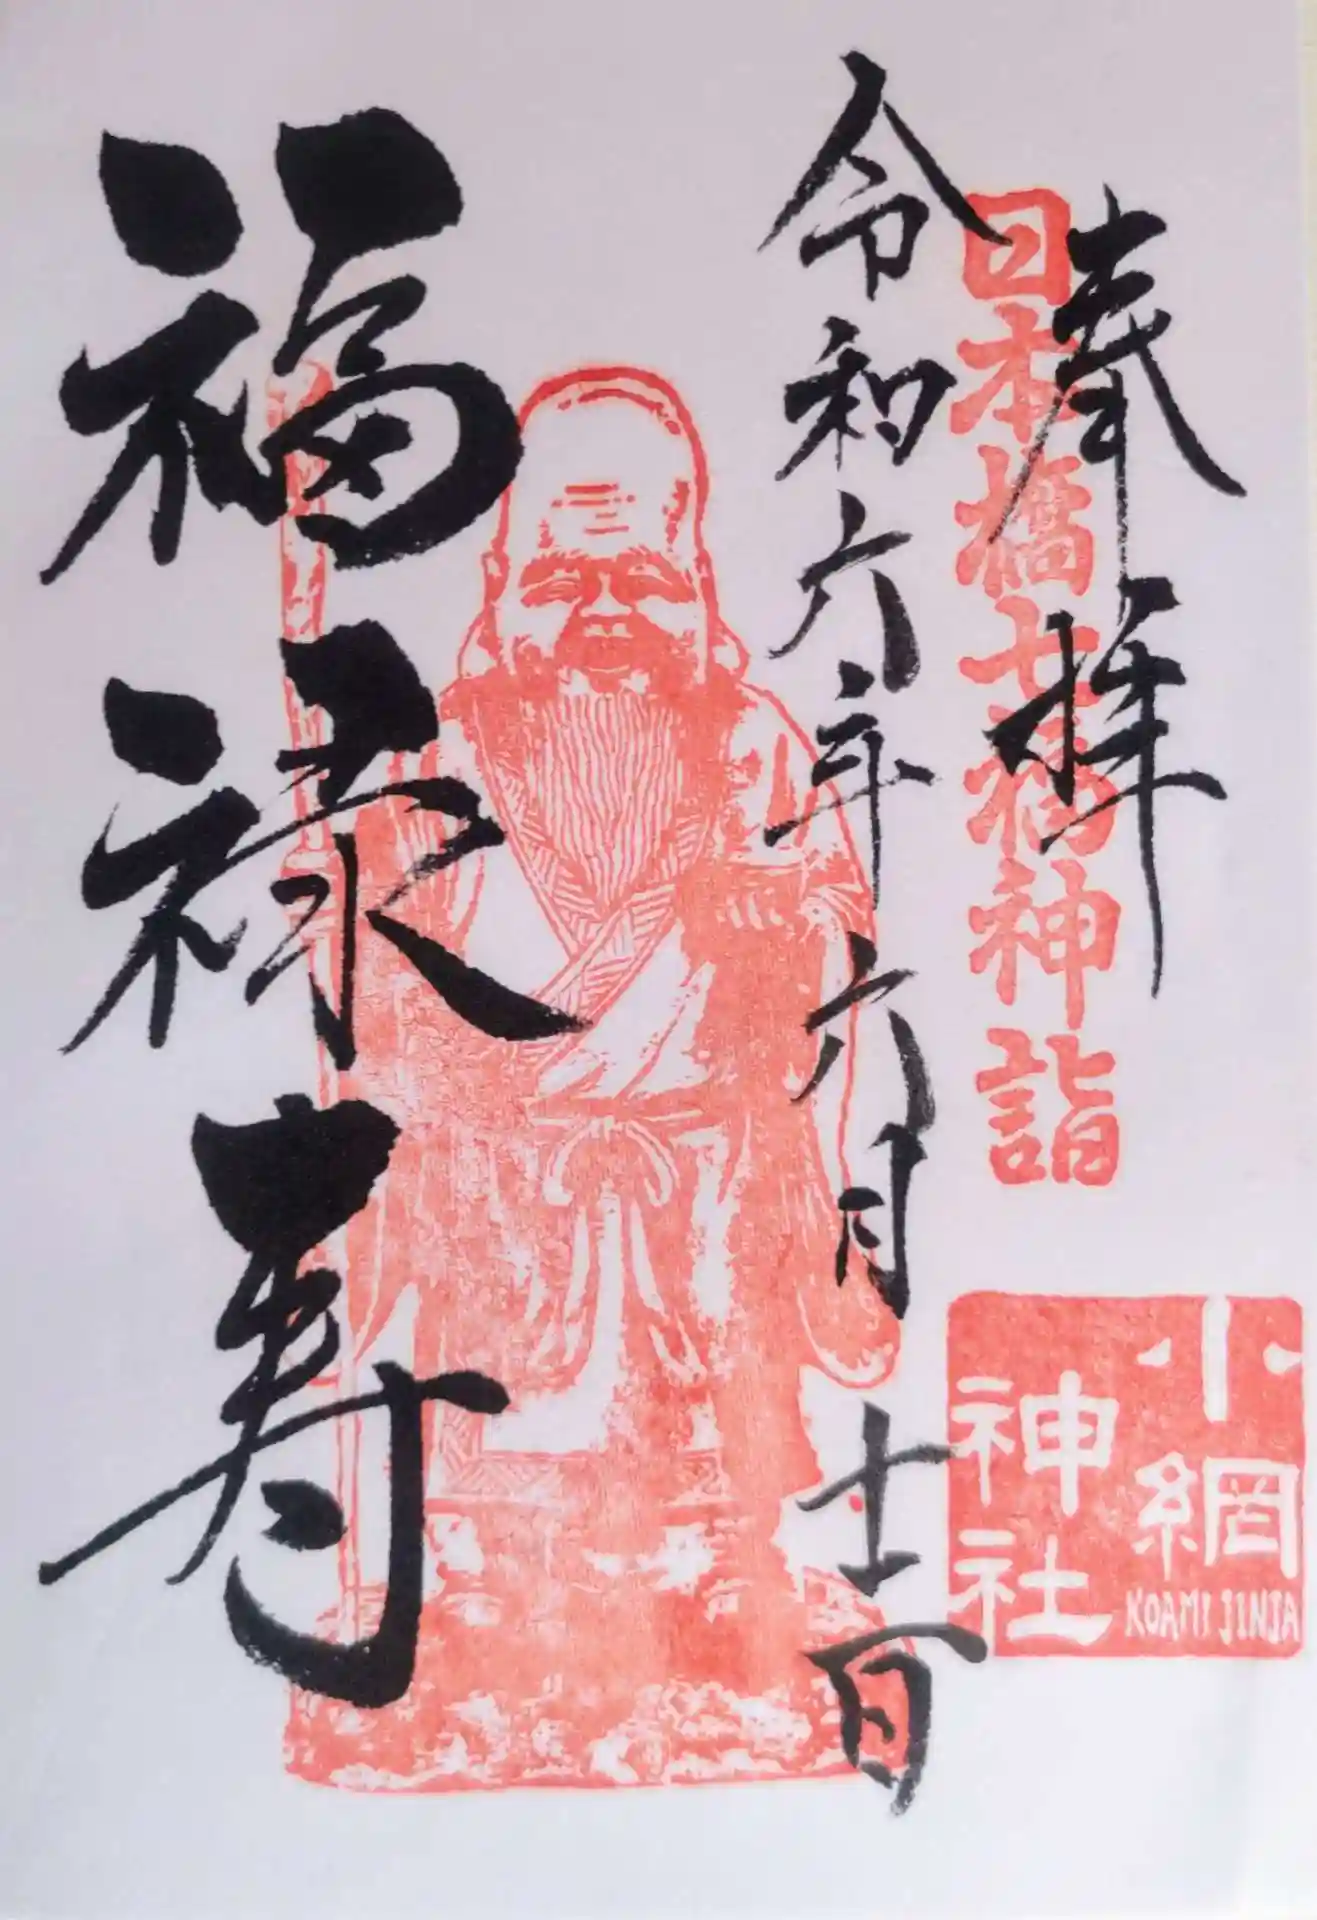 奉拝
日本橋七福神詣
令和六年六月十一日
福禄寿
小網
神社
KOAMI JINJA